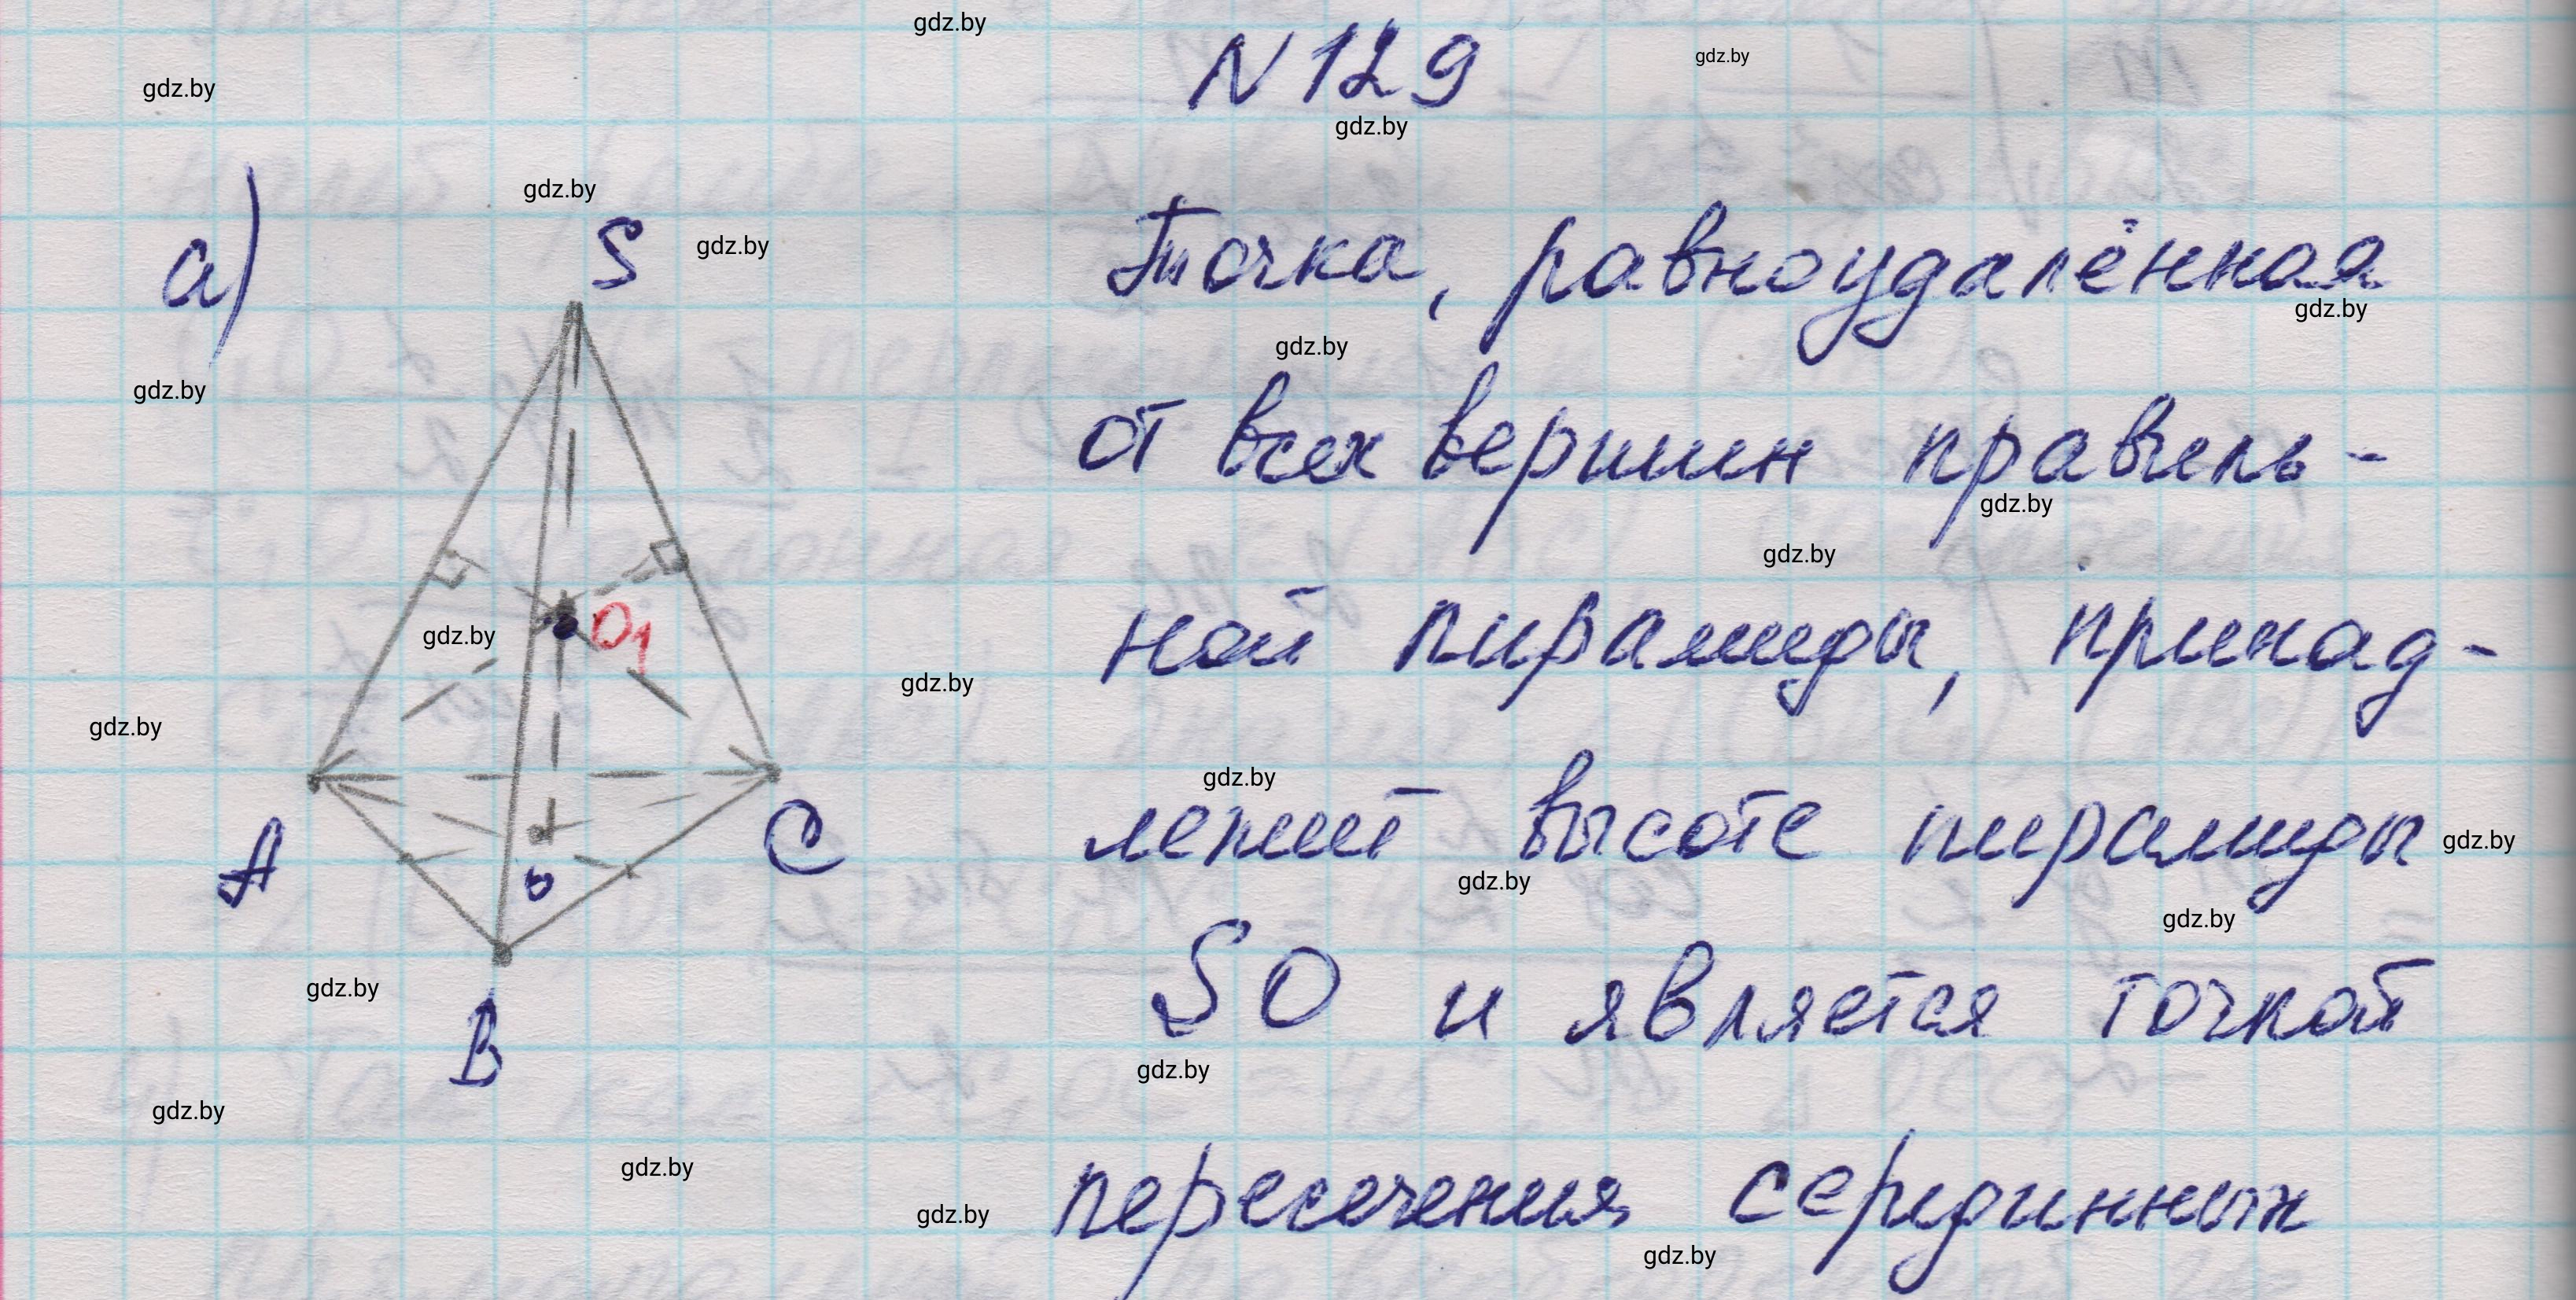 gdz.by
N 129
gdz.by
gdz.by
gdz.by
а)
gdz.by
S
gdz.by
Точка, равноудалённая
gdz.by
gdz.by
gdz.by
от всех вершин правиль-
gdz.by
gdz.by
O1
gdz.by
ной пирамиды, принад-
gdz.by
gdz.by
gdz.by
A
O
C
лежит высоте пирамиды
gdz.by
gdz.by
gdz.by
gdz.by
B
SO и является точкой
gdz.by
gdz.by
gdz.by
gdz.by
пересечения серединных
gdz.by